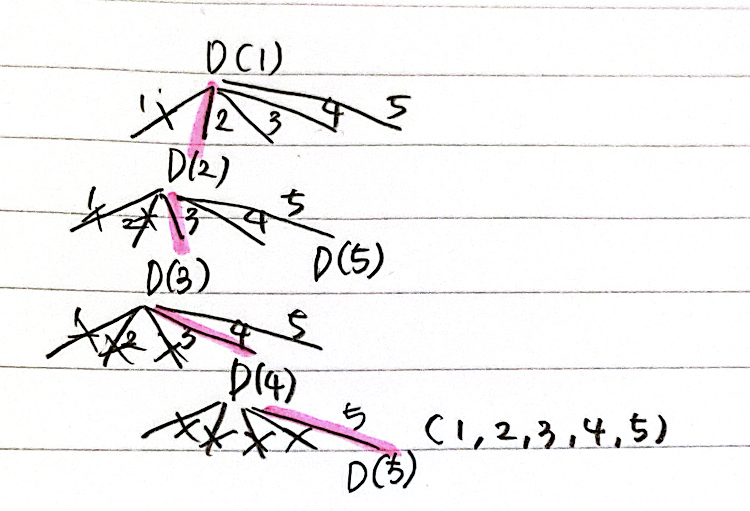 D(1)
1 2 3 4 5
D(2)
1 2 3 4 5
D(5)
D(3)
1 2 3 4 5
D(4)
5
(1, 2, 3, 4, 5)
D(5)